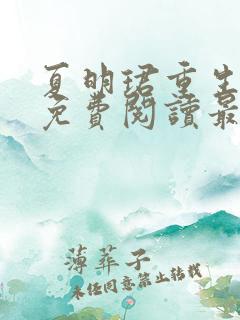 夏明珺重生
免費閱讀最
薄荈子
未经同意禁止转载